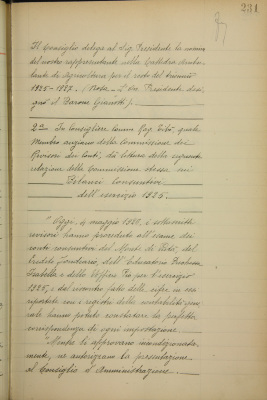 231
Il Consiglio delega al Sig. Presidente la nomina
del nostro rappresentante nella Cattedra Ambu-
lante di Agricoltura per il resto del biennio
1925-1927. (Nota - Il Sig. Presidente desi-
gnò il Barone Granotti).
2=. Il Consigliere comm. Rag. Tibò, quale
Membro anziano della Commissione dei
Revisori dei Conti, dà lettura della seguente
relazione della Commissione stessa sui
Bilanci Consuntivi
dell'esercizio 1925.
"Oggi, 4 maggio 1926, i sottoscritti
revisori hanno proceduto all'esame dei
conti consuntivi del Monte di Pietà, del
Credito Fondiario, dell'Esattoria
e dell'Ufficio Pio per l'esercizio
1925, e dal riscontro fatto delle cifre in essi
riportate con i registri della contabilità gene-
rale hanno potuto constatare la perfetta
corrispondenza di ogni impostazione.
"Mentre li approvano incondizionata-
mente, ne autorizzano la presentazione
al Consiglio d'Amministrazione.